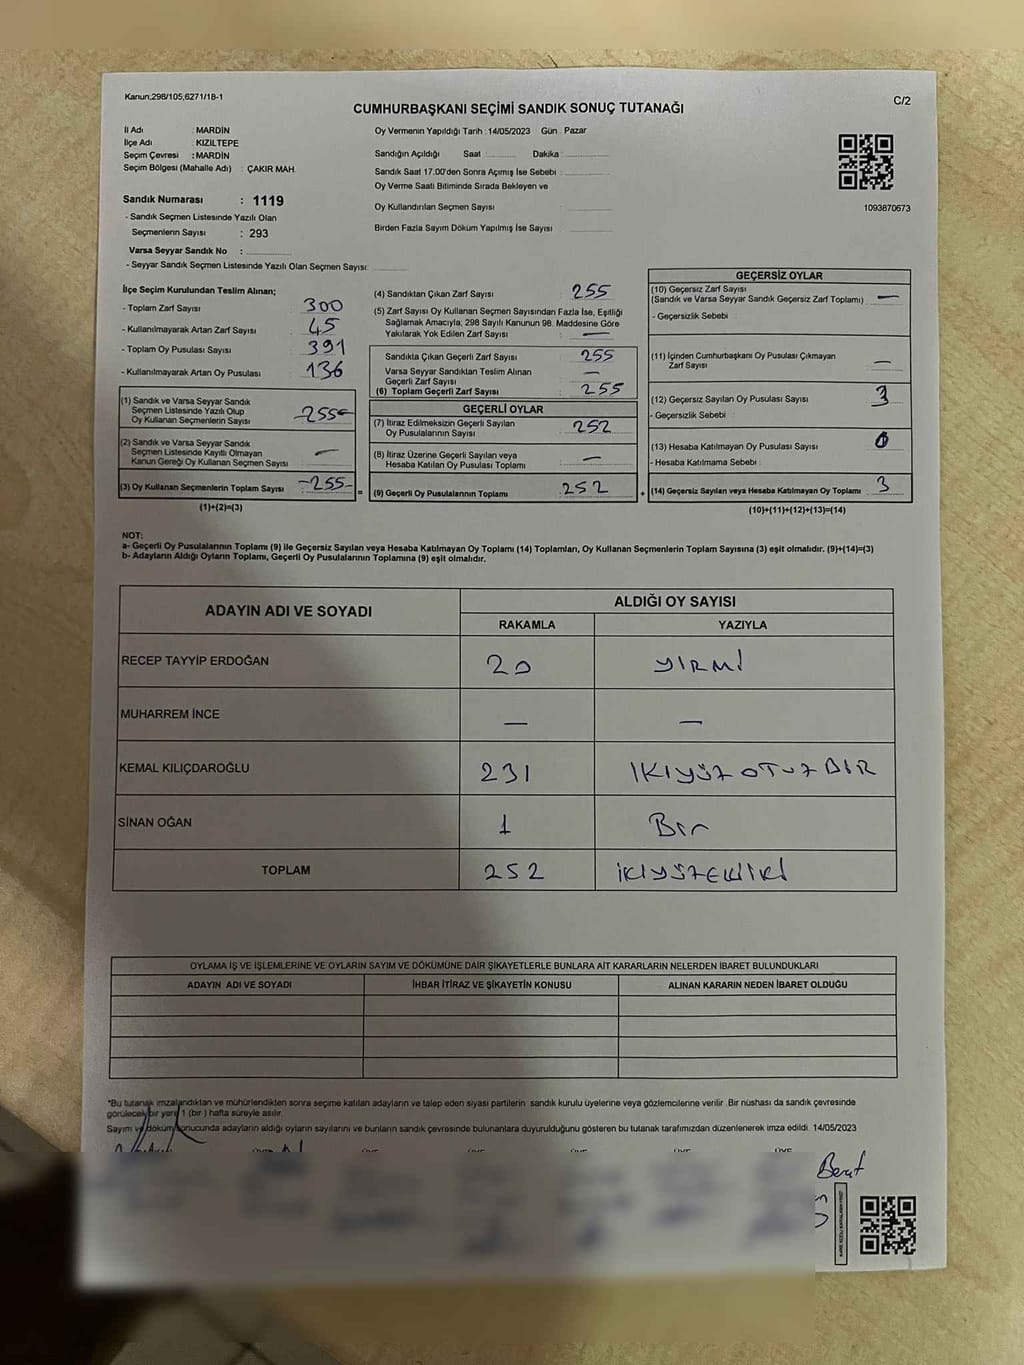 Kanun;298/105,6271/18-1
C/2
CUMHURBAŞKANI SEÇİMİ SANDIK SONUÇ TUTANAĞI
İl Adı : MARDİN
İlçe Adı : KIZILTEPE
Seçim Çevresi : MARDİN
Seçim Bölgesi (Mahalle Adı) : ÇAKIR MAH.
Sandık Numarası : 1119
- Sandık Seçmen Listesinde Yazılı Olan
Seçmenlerin Sayısı : 293
Varsa Seyyar Sandık No :
- Seyyar Sandık Seçmen Listesinde Yazılı Olan Seçmen Sayısı:
Oy Vermenin Yapıldığı Tarih : 14/05/2023 Gün : Pazar
Sandığın Açıldığı Saat Dakika :
Sandık Saat 17.00'den Sonra Açımış İse Sebebi :
Oy Verme Saati Bitiminde Sırada Bekleyen ve
Oy Kullandırılan Seçmen Sayısı :
Birden Fazla Sayım Döküm Yapılmış İse Sayısı :
1093870673
İlçe Seçim Kurulundan Teslim Alınan;
- Toplam Zarf Sayısı : 300
- Kullanılmayarak Artan Zarf Sayısı : 45
- Toplam Oy Pusulası Sayısı : 391
- Kullanılmayarak Artan Oy Pusulası : 136
(1) Sandık ve Varsa Seyyar Sandık
Seçmen Listesinde Yazılı Olup
Oy Kullanan Seçmenlerin Sayısı -255-
(2) Sandık ve Varsa Seyyar Sandık
Seçmen Listesinde Kayıtlı Olmayan
Kanun Gereği Oy Kullanan Seçmen Sayısı : —
(3) Oy Kullanan Seçmenlerin Toplam Sayısı : -255- =
(1)+(2)=(3)
(4) Sandıktan Çıkan Zarf Sayısı : 255
(5) Zarf Sayısı Oy Kullanan Seçmen Sayısından Fazla İse, Eşitliği
Sağlamak Amacıyla, 298 Sayılı Kanunun 98. Maddesine Göre
Yakılarak Yok Edilen Zarf Sayısı : —
Sandıkta Çıkan Geçerli Zarf Sayısı : 255
Varsa Seyyar Sandıktan Teslim Alınan : —
Geçerli Zarf Sayısı
(6) Toplam Geçerli Zarf Sayısı : 255
GEÇERLİ OYLAR
(7) İtiraz Edilmeksizin Geçerli Sayılan
Oy Pusulalarının Sayısı : 252
(8) İtiraz Üzerine Geçerli Sayılan veya
Hesaba Katılan Oy Pusulası Toplamı : —
(9) Geçerli Oy Pusulalarının Toplamı : 252 +
GEÇERSİZ OYLAR
(10) Geçersiz Zarf Sayısı
(Sandık ve Varsa Seyyar Sandık Geçersiz Zarf Toplamı) : —
- Geçersizlik Sebebi :
(11) İçinden Cumhurbaşkanı Oy Pusulası Çıkmayan
Zarf Sayısı : —
(12) Geçersiz Sayılan Oy Pusulası Sayısı : 3
- Geçersizlik Sebebi :
(13) Hesaba Katılmayan Oy Pusulası Sayısı : 0
- Hesaba Katılmama Sebebi :
(14) Geçersiz Sayılan veya Hesaba Katılmayan Oy Toplamı : 3
(10)+(11)+(12)+(13)=(14)
NOT:
a- Geçerli Oy Pusulalarının Toplamı (9) ile Geçersiz Sayılan veya Hesaba Katılmayan Oy Toplamı (14) Toplamları, Oy Kullanan Seçmenlerin Toplam Sayısına (3) eşit olmalıdır. (9)+(14)=(3)
b- Adayların Aldığı Oyların Toplamı, Geçerli Oy Pusulalarının Toplamına (9) eşit olmalıdır.
ADAYIN ADI VE SOYADI ALDIĞI OY SAYISI
RAKAMLA YAZIYLA
RECEP TAYYİP ERDOĞAN 20 YIRMİ
MUHARREM İNCE — —
KEMAL KILIÇDAROĞLU 231 IKIYÜZ OTUZ BIR
SİNAN OĞAN 1 Bir
TOPLAM 252 İKİYÜZELLİİKİ
OYLAMA İŞ VE İŞLEMLERİNE VE OYLARIN SAYIM VE DÖKÜMÜNE DAİR ŞİKAYETLERLE BUNLARA AİT KARARLARIN NELERDEN İBARET BULUNDUKLARI
ADAYIN ADI VE SOYADI İHBAR İTİRAZ VE ŞİKAYETİN KONUSU ALINAN KARARIN NEDEN İBARET OLDUĞU
*Bu tutanak imzalandıktan ve mühürlendikten sonra seçime katılan adayların ve talep eden siyasi partilerin sandık kurulu üyelerine veya gözlemcilerine verilir. Bir nüshası da sandık çevresinde
görülecek bir yere 1 (bir ) hafta süreyle asılır.
Sayım ve döküm sonucunda adayların aldığı oyların sayılarını ve bunların sandık çevresinde bulunanlara duyurulduğunu gösteren bu tutanak tarafımızdan düzenlenerek imza edildi. 14/05/2023
Berat